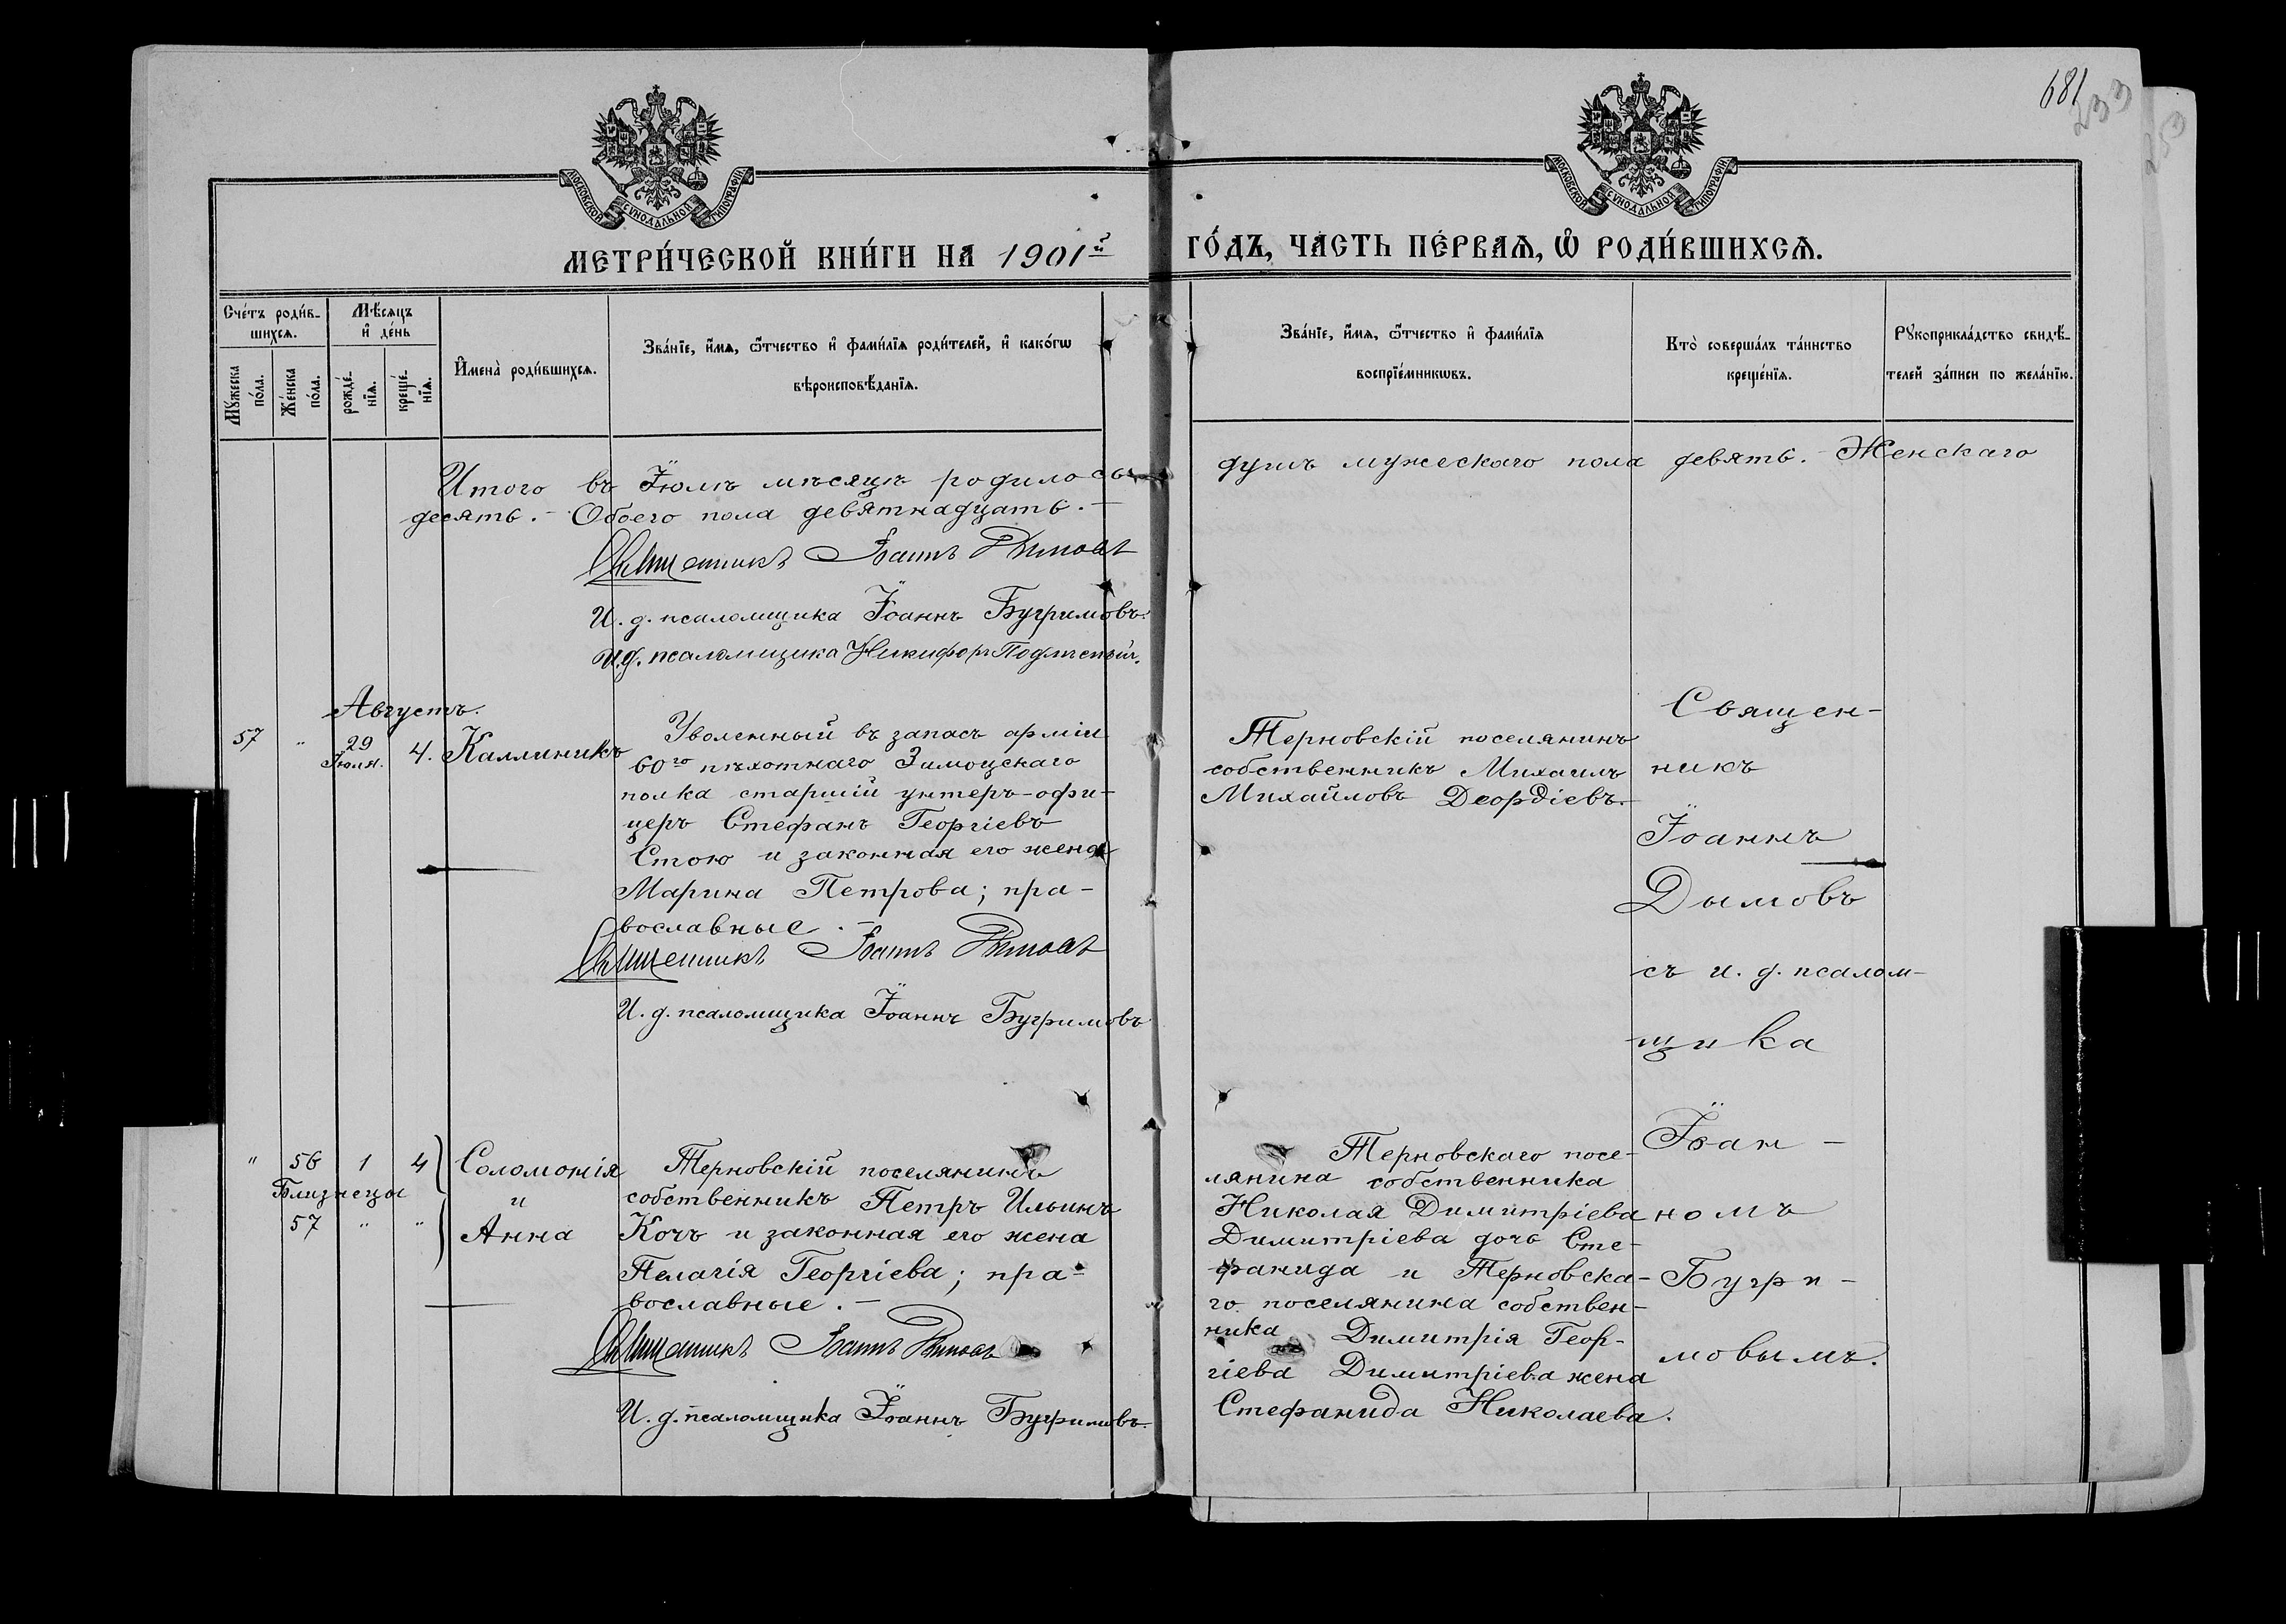 681
233
МОСКОВСКОЙ СѴНОДАЛЬНОЙ ТИПОГРАФІИ
МОСКОВСКОЙ СѴНОДАЛЬНОЙ ТИПОГРАФІИ
МЕТРИ́ЧЕСКОЙ КНИ́ГИ НА 1901й
ГО́ДЪ, ЧА́СТЬ ПЕ́РВАѦ, Ѽ РОДИ́ВШИХСѦ.
Сче́тъ роди́в-
шихся.
Мѣ́сяцъ
и҆ де́нь
Мꙋ́жеска
по́ла.
Же́нска
по́ла.
рожде́-
нїя.
креще́-
нїя.
И҆мена̀ роди́вшихся.
Зва́нїе, и҆́мя, ѻ҆́тчество и҆ фами́лїя роди́телей, и҆ како́гѡ
вѣроисповѣ́данїя.
Зва́нїе, и҆́мя, ѻ҆́тчество и҆ фами́лїя
воспрїе́мникѡвъ.
Кто̀ соверша́лъ та́инство
креще́нїя.
Рꙋкоприкла́дство свидѣ́-
телей за́писи по жела́нїю.
Итого въ Іюлѣ мѣсяцѣ родилось
душъ мужескаго пола девять. Женскаго
десять. - Обоего пола девятнадцать. -
Священникъ Іоаннъ Дымовъ
И. д. псаломщика Іоаннъ Бугримовъ.
И.д. псаломщика Никифоръ
Августъ.
57 " 29
Іюля. 4. Каллиникъ
Уволенный въ запасъ арміи
60го пѣхотнаго Замоцскаго
полка старшій унтеръ-офи-
церъ Стефанъ Георгіевъ
Стою и законная его жена
Марина Петрова; пра-
вославные. -
Священникъ Іоаннъ Дымовъ
И. д. псаломщика Іоаннъ Бугримовъ
Терновскій поселянинъ
собственникъ Михаилъ
Михайловъ Деордіевъ.
Священ-
никъ
Іоаннъ
Дымовъ
съ и. д. псалом-
щика
Іоан-
номъ
Бугри-
мовымъ.
" 56 1 4
Близнецы
57 " "
Соломонія
и
Анна
Терновскій поселянинъ
собственникъ Петръ Ильинъ
Кочъ и законная его жена
Пелагія Георгіева; пра-
вославные. -
Священникъ Іоаннъ Дымовъ
И. д. псаломщика Іоаннъ Бугримовъ.
Терновскаго посе-
лянина собственника
Николая Димитріева
Димитріева дочь Сте-
фанида и Терновска-
го поселянина собствен-
ника Димитрія Геор-
гіева Димитріева жена
Стефанида Николаева.